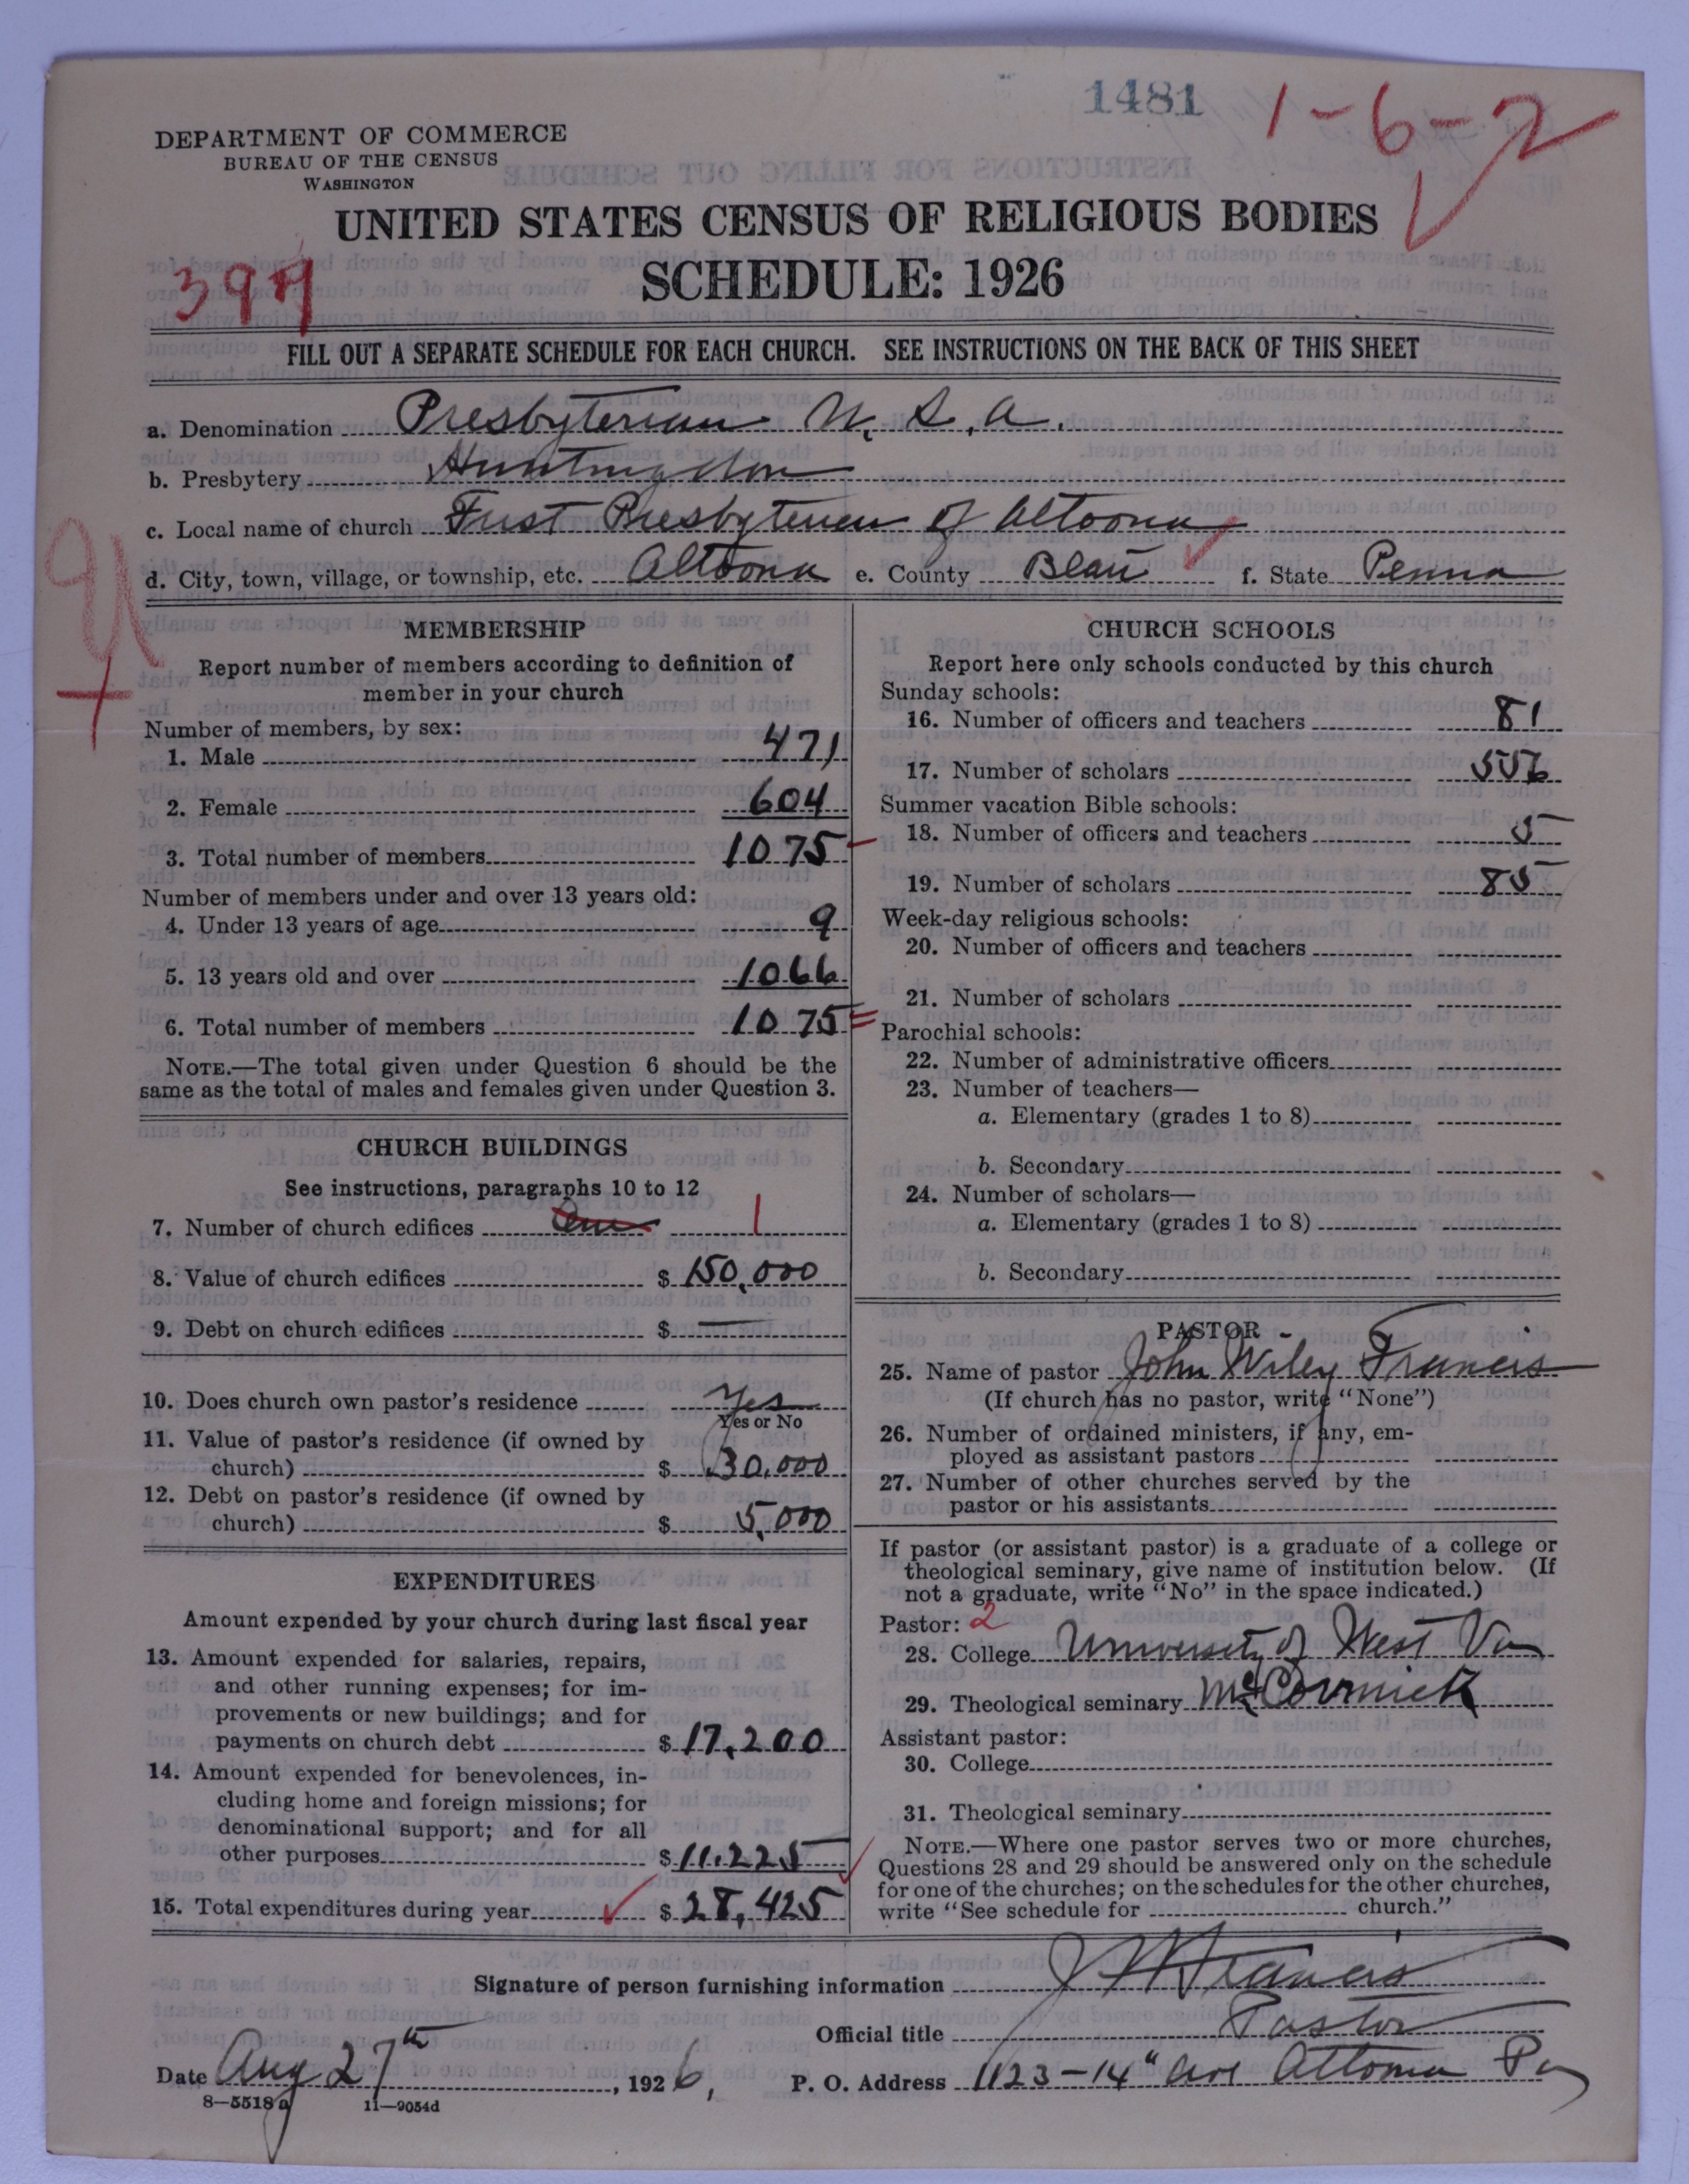 1481
1-6-2
DEPARTMENT OF COMMERCE
BUREAU OF THE CENSUS
WASHINGTON
UNITED STATES CENSUS OF RELIGIOUS BODIES
SCHEDULE: 1926
FILL OUT A SEPARATE SCHEDULE FOR EACH CHURCH. SEE INSTRUCTIONS ON THE BACK OF THIS SHEET
a. Denomination Presbyterian U. S. A.
b. Presbytery Huntingdon
c. Local name of church First Presbyterian of Altoona
d. City, town, village, or township, etc. Altoona e. County Blair f. State Penna
MEMBERSHIP
Report number of members according to definition of
member in your church
Number of members, by sex:
1. Male 471
2. Female 604
3. Total number of members 1075
Number of members under and over 13 years old:
4. Under 13 years of age 9
5. 13 years old and over 1066
6. Total number of members 1075
NOTE.—The total given under Question 6 should be the
same as the total of males and females given under Question 3.
CHURCH BUILDINGS
See instructions, paragraphs 10 to 12
7. Number of church edifices One 1
8. Value of church edifices $ 150,000
9. Debt on church edifices $ —
10. Does church own pastor's residence Yes
Yes or No
11. Value of pastor's residence (if owned by
church) $ 30,000
12. Debt on pastor's residence (if owned by
church) $ 5,000
EXPENDITURES
Amount expended by your church during last fiscal year
13. Amount expended for salaries, repairs,
and other running expenses; for im-
provements or new buildings; and for
payments on church debt $ 17,200
14. Amount expended for benevolences, in-
cluding home and foreign missions; for
denominational support; and for all
other purposes $ 11,225
15. Total expenditures during year $ 28,425
CHURCH SCHOOLS
Report here only schools conducted by this church
Sunday schools:
16. Number of officers and teachers 81
17. Number of scholars 556
Summer vacation Bible schools:
18. Number of officers and teachers 5
19. Number of scholars 85
Week-day religious schools:
20. Number of officers and teachers
21. Number of scholars
Parochial schools:
22. Number of administrative officers
23. Number of teachers—
a. Elementary (grades 1 to 8)
b. Secondary
24. Number of scholars—
a. Elementary (grades 1 to 8)
b. Secondary
PASTOR
25. Name of pastor John Wiley Francis
(If church has no pastor, write "None")
26. Number of ordained ministers, if any, em-
ployed as assistant pastors
27. Number of other churches served by the
pastor or his assistants
If pastor (or assistant pastor) is a graduate of a college or
theological seminary, give name of institution below. (If
not a graduate, write "No" in the space indicated.)
Pastor: 2
28. College University of West Va
29. Theological seminary McCormick
Assistant pastor:
30. College
31. Theological seminary
NOTE.—Where one pastor serves two or more churches,
Questions 28 and 29 should be answered only on the schedule
for one of the churches; on the schedules for the other churches,
write "See schedule for church."
Signature of person furnishing information J W Francis
Official title Pastor
Date Aug 27th, 1926, P. O. Address 1123-14" Ave Altoona Pa
8—5518 a 11—9054d